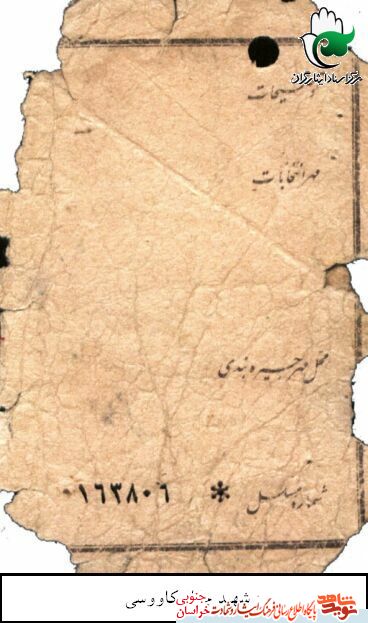 مرکز اسناد ایثارگران
توضیحات
مهر انتخابات
محل مهر جیره بندی
شماره مسلسل * ۰۱۶۳۸۰۶
شهید کاووسی
خراسان جنوبی
پایگاه اطلاع رسانی فرهنگ ایثار و شهادت
نوید شاهد